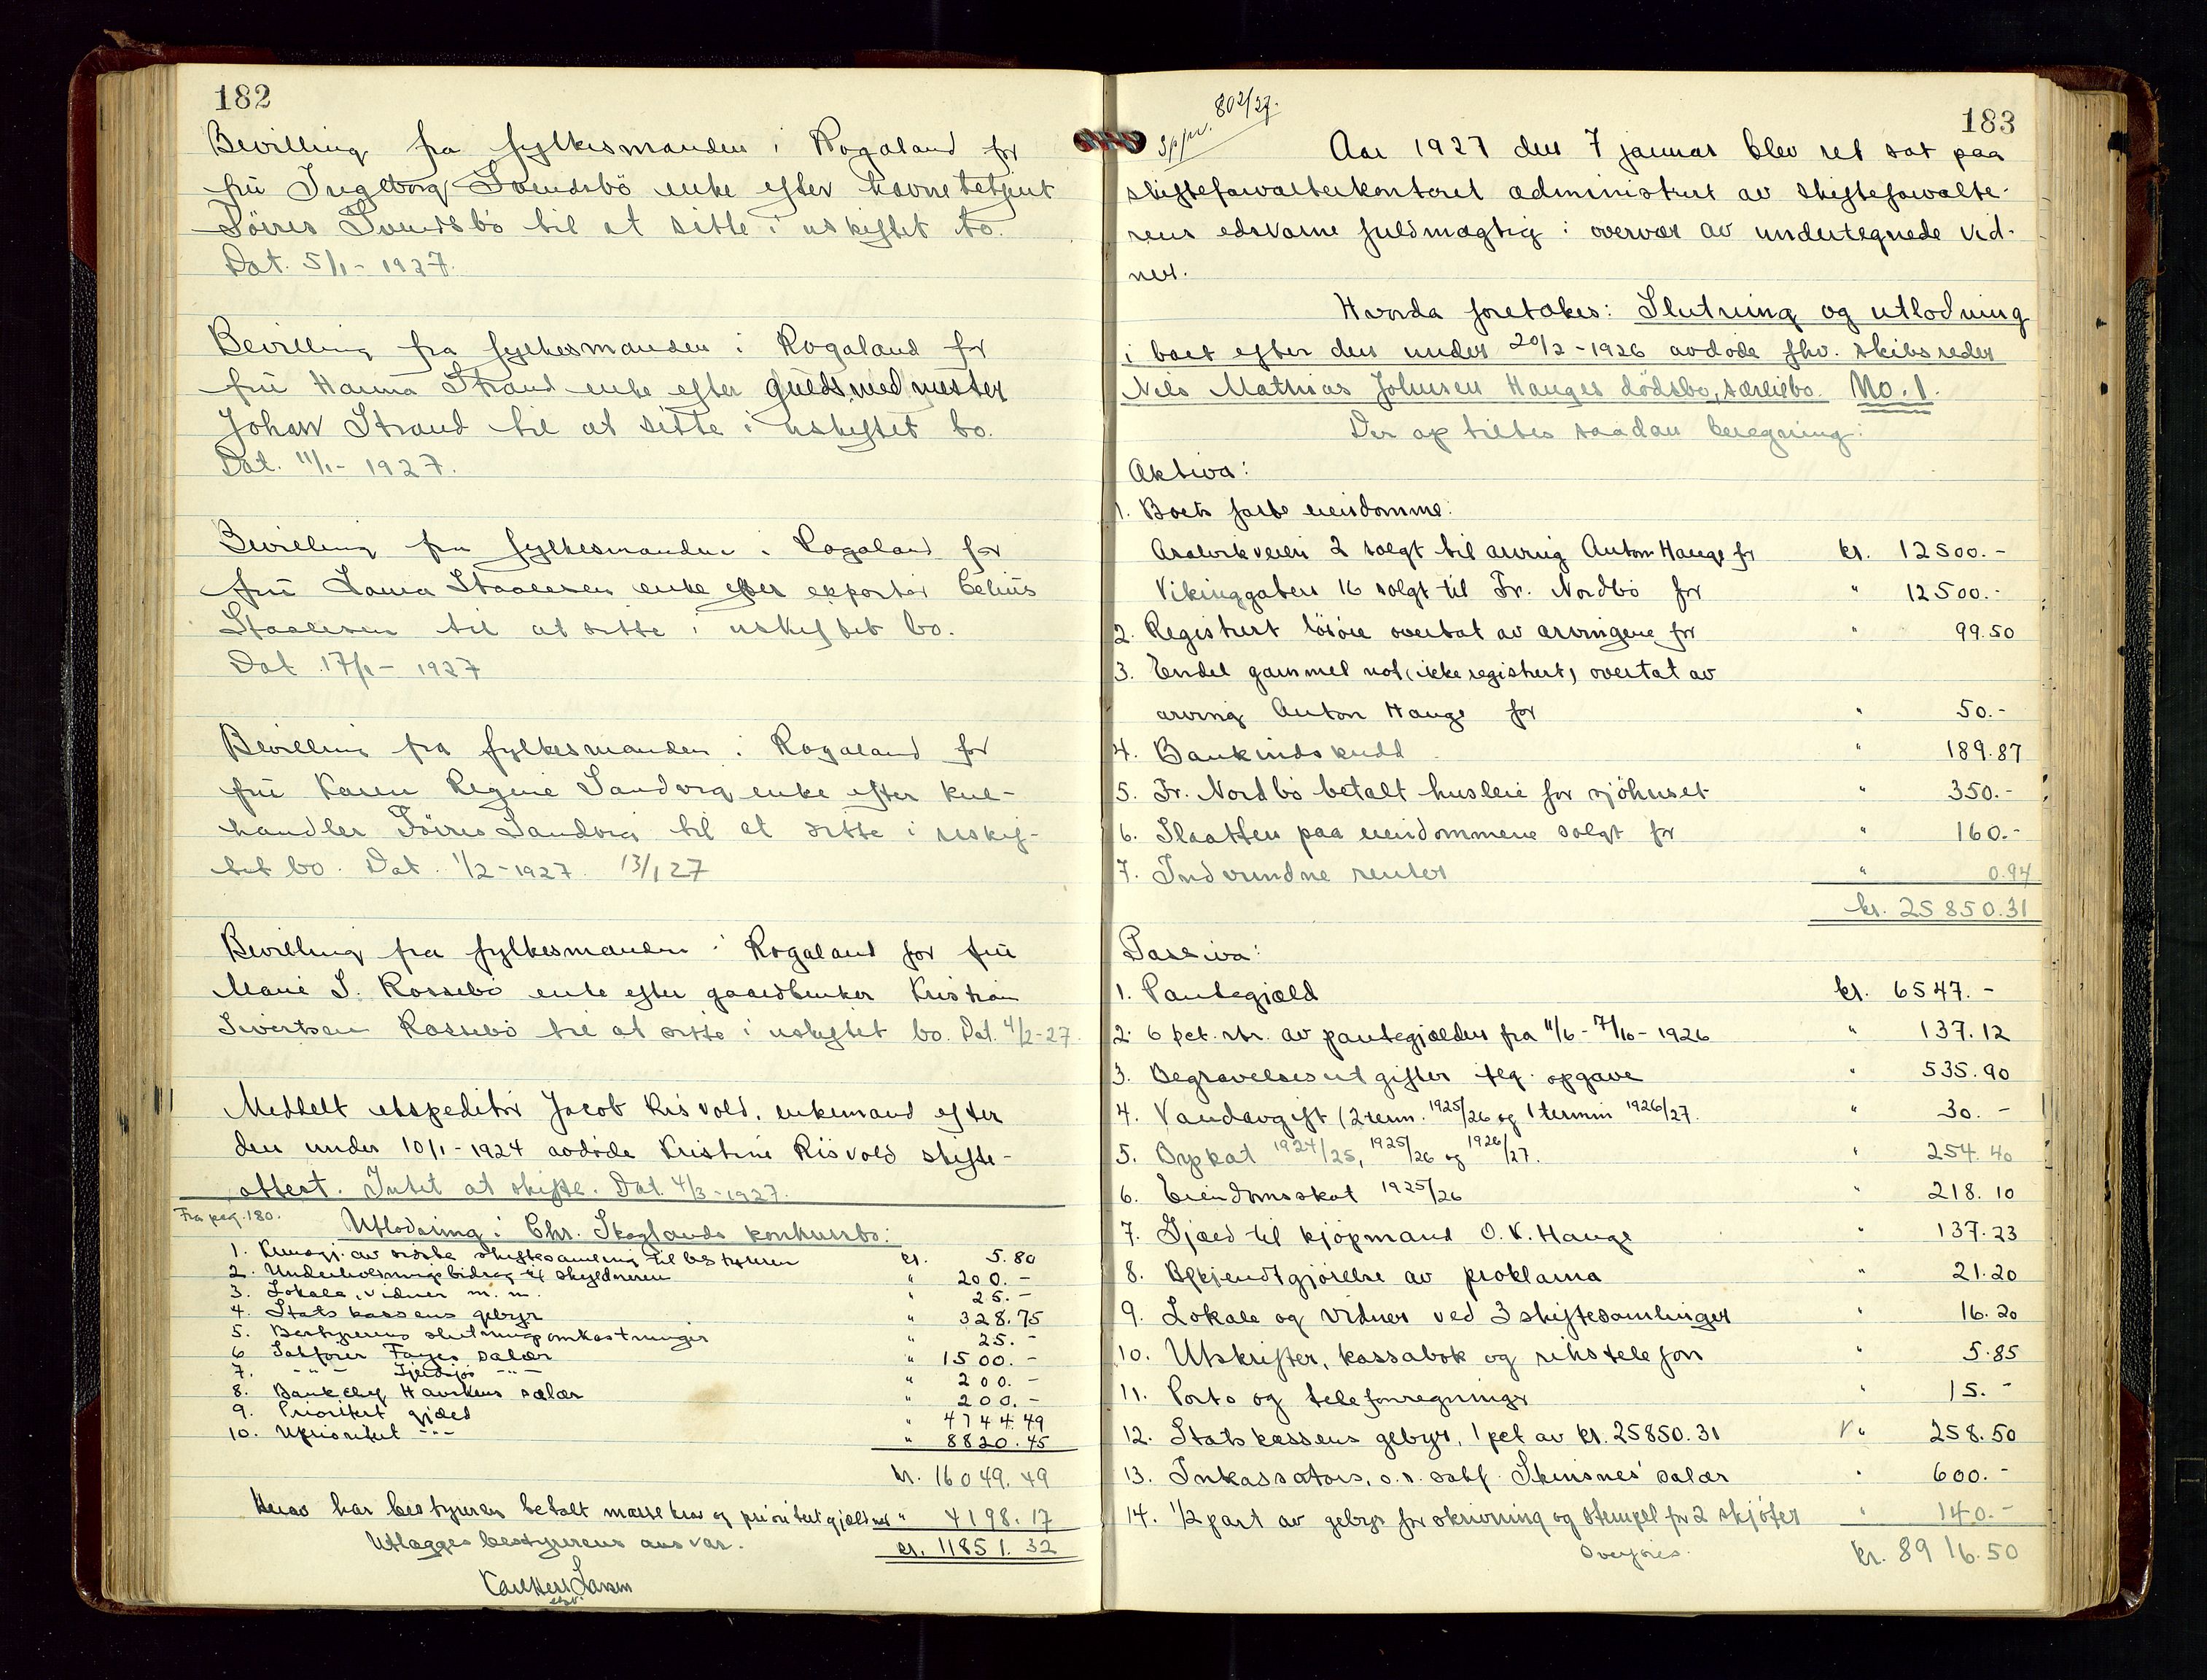 182
Bevilling fra fylkesmanden i Rogaland for
fru Ingeborg Svendsbö enke efter havnebetjent
Söires Svendsbö til at sitte i uskiftet bo.
Dat. 5/1 - 1927.
Bevilling fra fylkesmanden i Rogaland for
fru Hanna Strand enke efter guldsmedmester
Johan Strand til at sitte i uskiftet bo.
Dat. 11/1 - 1927.
Bevilling fra fylkesmanden i Rogaland for
fru Laura Staalesen enke efter exportör
Staalesen til at sitte i uskiftet bo.
Dat. 17/1 - 1927
Bevilling fra fylkesmanden i Rogaland for
fru Karen Regine Sandvig enke efter kul-
handler Söires Sandvig til at sitte i uskif-
tet bo. Dat. 1/2 - 1927. 13/1 27
Bevilling fra fylkesmanden i Rogaland for fru
Marie S. Rossebö enke efter gaardbruker Kristian
Sivertsen Rossebö til at sitte i uskiftet bo. Dat. 4/2 - 27.
Meddelt ekspeditör Jacob Risvold, enkemand efter
den under 10/1 - 1924 avdöde Kristine Risvold skifte-
attest. Intet at skifte. Dat. 4/3 - 1927.
Fra pag. 180.
Utlodning i Chr. Skoglands konkursbo:
1. Kundgj. av sidste skiftesamling til bestyreren kr. 5.80
2. Underholdningsbidrag til skyldneren " 200.-
3. Lokale, vidner m. m. " 25.-
4. Statskassens gebyr " 328.75
5. Bestyrerens slutningsomkostninger " 25.-
6 Sakförer Fayes salær " 1500.-
7. -"- -"- " 200.-
8. Bankchef Hauskens salær " 200.-
9. Prioritert gjæld " 4744.49
10. Uprioritert -"- " 8820.45
kr. 16049.49
Herav har bestyreren betalt massekrav og prioritert gjæld med " 4198.17
Utlægges bestyrerens ansvar. kr. 11851.32
183
802/27.
Aar 1927 den 7 januar blev ret sat paa
skifteforvalterkontoret administrert av skifteforvalte-
rens edsvorne fuldmægtig i overvær av undertegnede vid-
ner.
Hvorda foretokes: Slutning og utlodning
i boet efter den under 20/2 - 1926 avdöde fhv. skibsreder
Nils Mathias Johnsen Hauges dödsbo, særeiebo. No. 1.
Der opstilles saadan beregning:
Aktiva:
1. Boets faste eiendomme:
Aralvikveien 2 solgt til arving Anton Hauge for kr. 12500.-
Vikinggaten 16 solgt til Fr. Nordbö for " 12500.-
2. Registrert lösöre overtat av arvingene for " 99.50
3. Endel gammel not (ikke registrert) overtat av
arving Anton Hauge for " 50.-
4. Bankindskudd " 189.87
5. Fr. Nordbö betalt husleie for sjöhuset " 350.-
6. Slaatten paa eiendommene solgt for " 160.-
7. Indvundne renter " 0.94
kr. 25850.31
Passiva:
1. Pantegjæld kr. 6547.-
2. 6 pct. rtr. av pantegjælden fra 11/6 - 7/10 - 1926 " 137.12
3. Begravelsesutgifter flg. opgave " 535.90
4. Vandavgift (2 term. 1925/26 og 1 termin 1926/27. " 30.-
5. Byskat 1924/25, 1925/26 og 1926/27. " 254.40
6. Eiendomsskat 1925/26 " 218.10
7. Gjæld til kjöpmand O. V. Hauge " 137.23
8. Bekjendtgjörelse av proklama " 21.20
9. Lokale og vidner ved 3 skiftesamlinger " 16.20
10. Utskrifter, kassabok og rikstelefon " 5.85
11. Porto og telefonregninger " 15.-
12. Statskassens gebyr, 1 pct av kr. 25850.31 " 258.50
13. Inkassators, o.r.sakf. Skeisnes' salær " 600.-
14. 1/2 part av gebyr for skrivning og stempel for 2 skjöter " 140.-
Overföres. kr. 8916.50